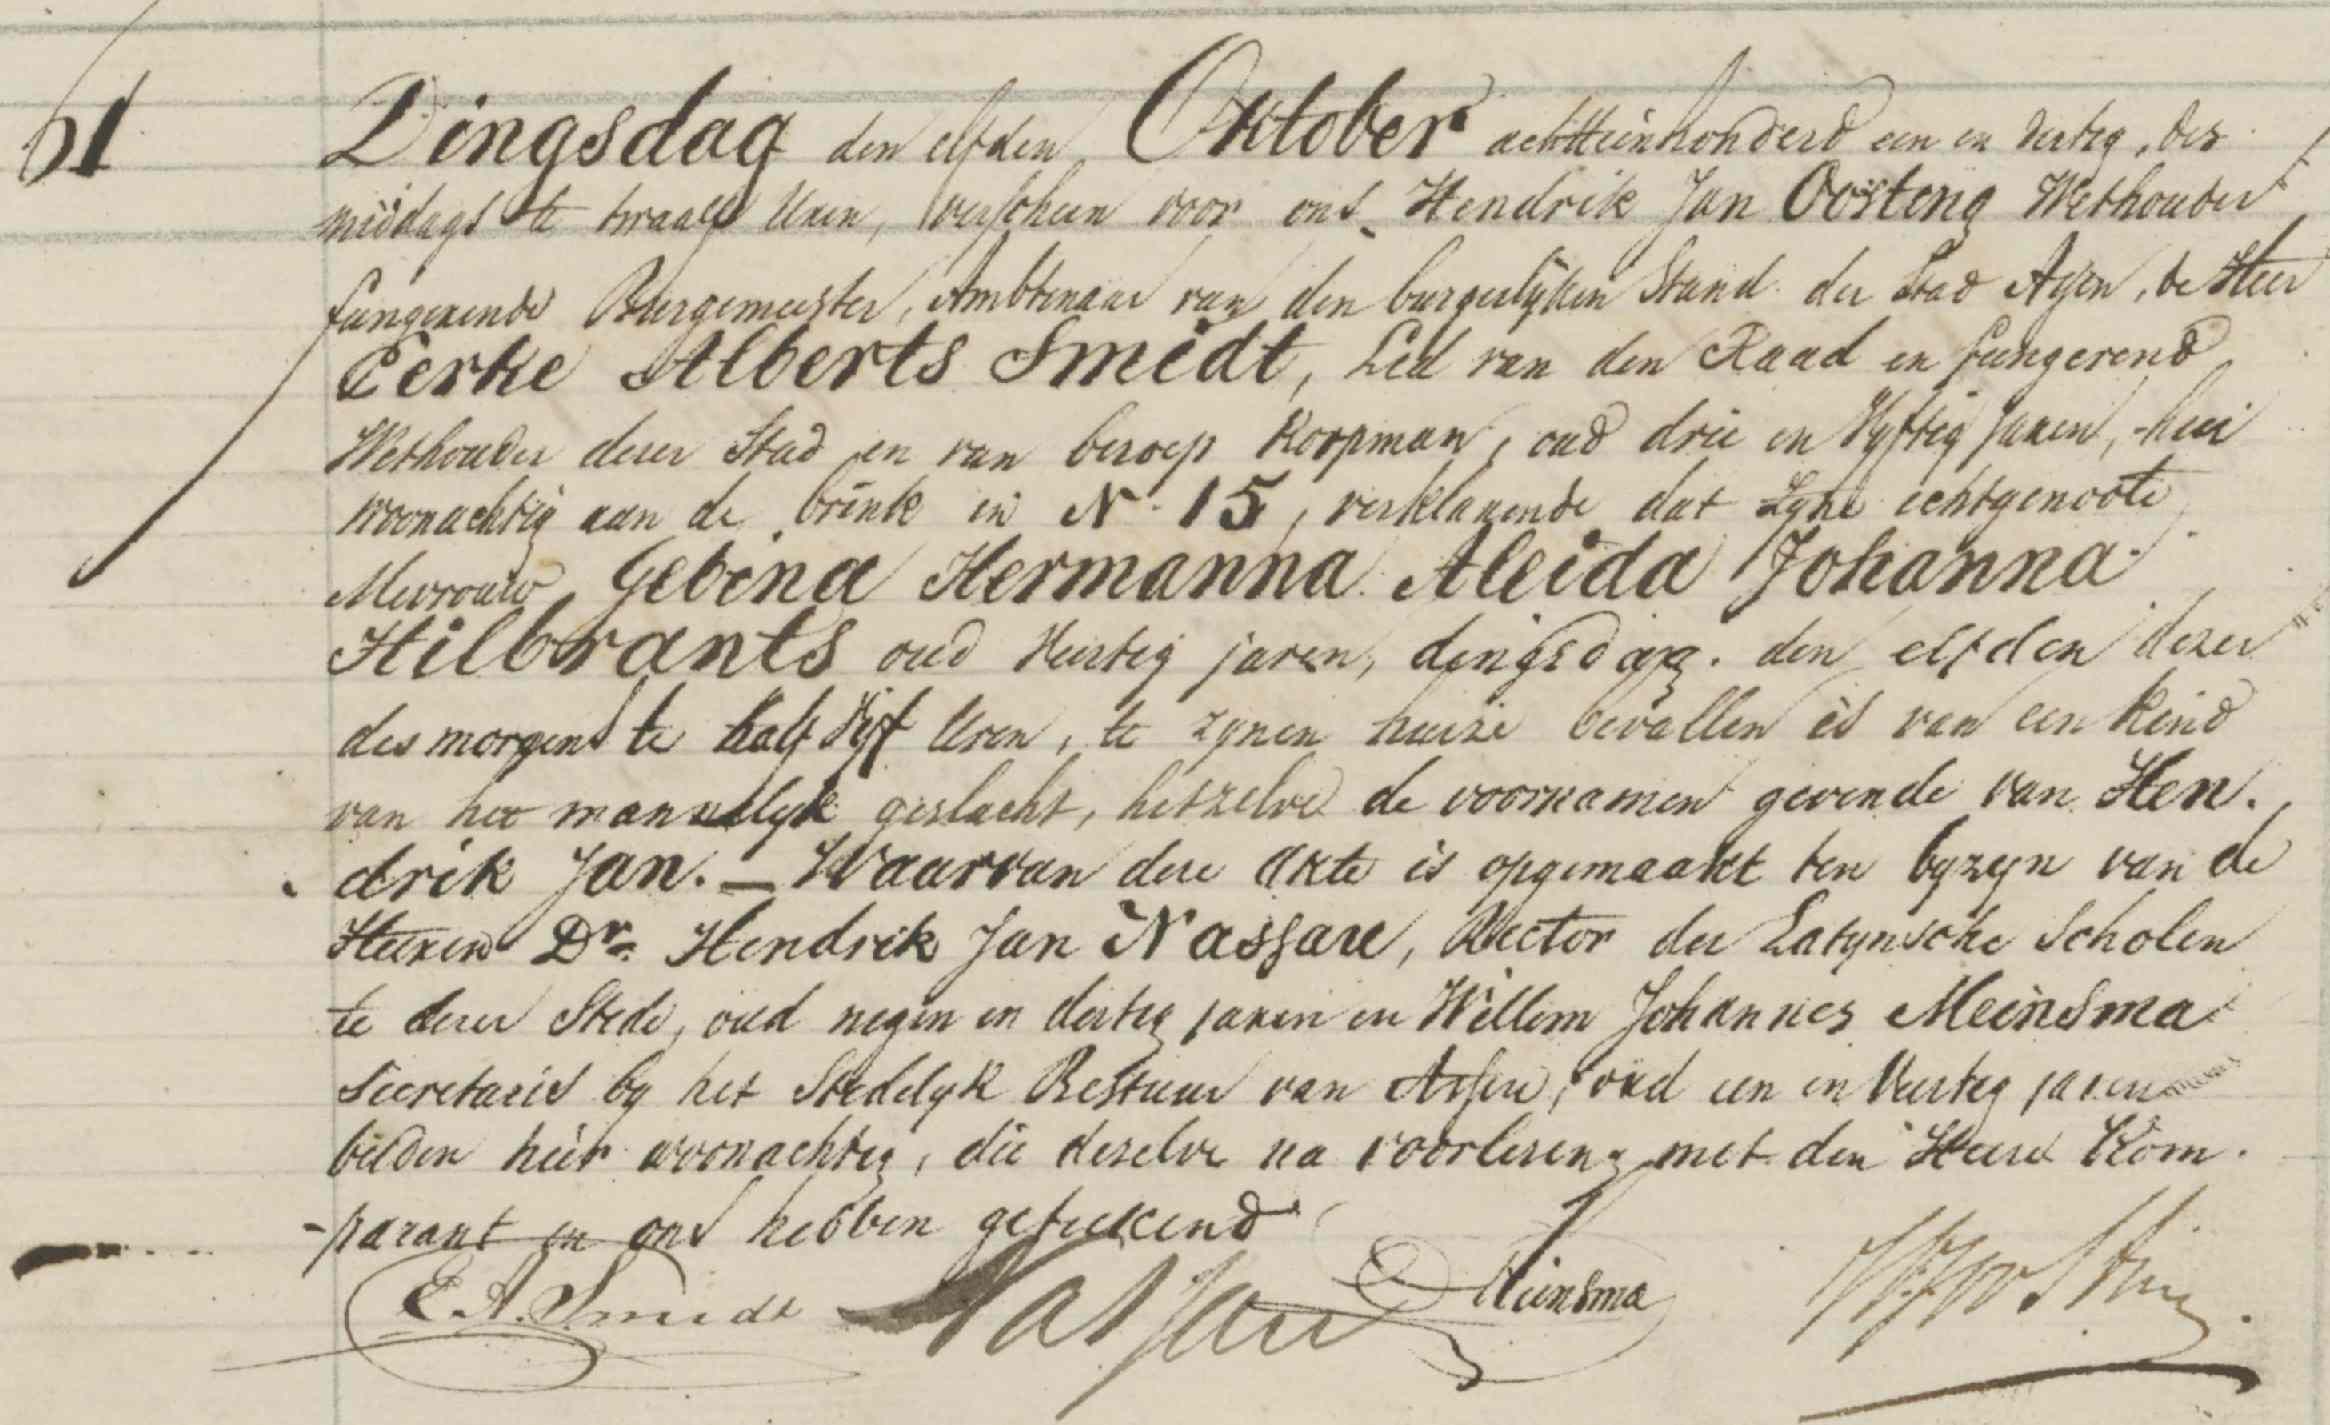 61
Dingsdag den elfden Oktober achttienhonderd een en dertig, des
middags te twaalf Uren, verscheen voor ons Hendrik Jan Oosting Wethouder
fungerende Burgemeester, Ambtenaar van den burgerlyken Stand der Stad Assen, de Heer
Eerke Alberts Smidt, Lid van den Raad en fungerend
Wethouder dezer Stad en van beroep Koopman, oud drie en Vyftig jaren, hier
woonachtig aan de brink in No. 15, verklarende dat Zyne echtgenoote
Mevrouw Gebina Hermanna Aleida Johanna
Hilbrants oud Veertig jaren, dingsdag den elfden dezer
des morgens te half Vyf Uren, te zynen huize bevallen is van een kind
van het mannelyk geslacht, hetzelve de voornamen gevende van Hen-
drik Jan. — Waarvan deze Akte is opgemaakt ten byzyn van de
Heeren Dr. Hendrik Jan Nassau, Rector der Latynsche Scholen
te dezer Stede, oud negen en dertig jaren en Willem Johannes Meinsma
Secretaris by het Stedelyk Bestuur van Assen, oud een en Veertig jaren
beiden hier woonachtig, die dezelve na voorlezing met den Heere Kom-
-parant en ons hebben geteekend
E. A. Smidt Nassau Meinsma HJOosting